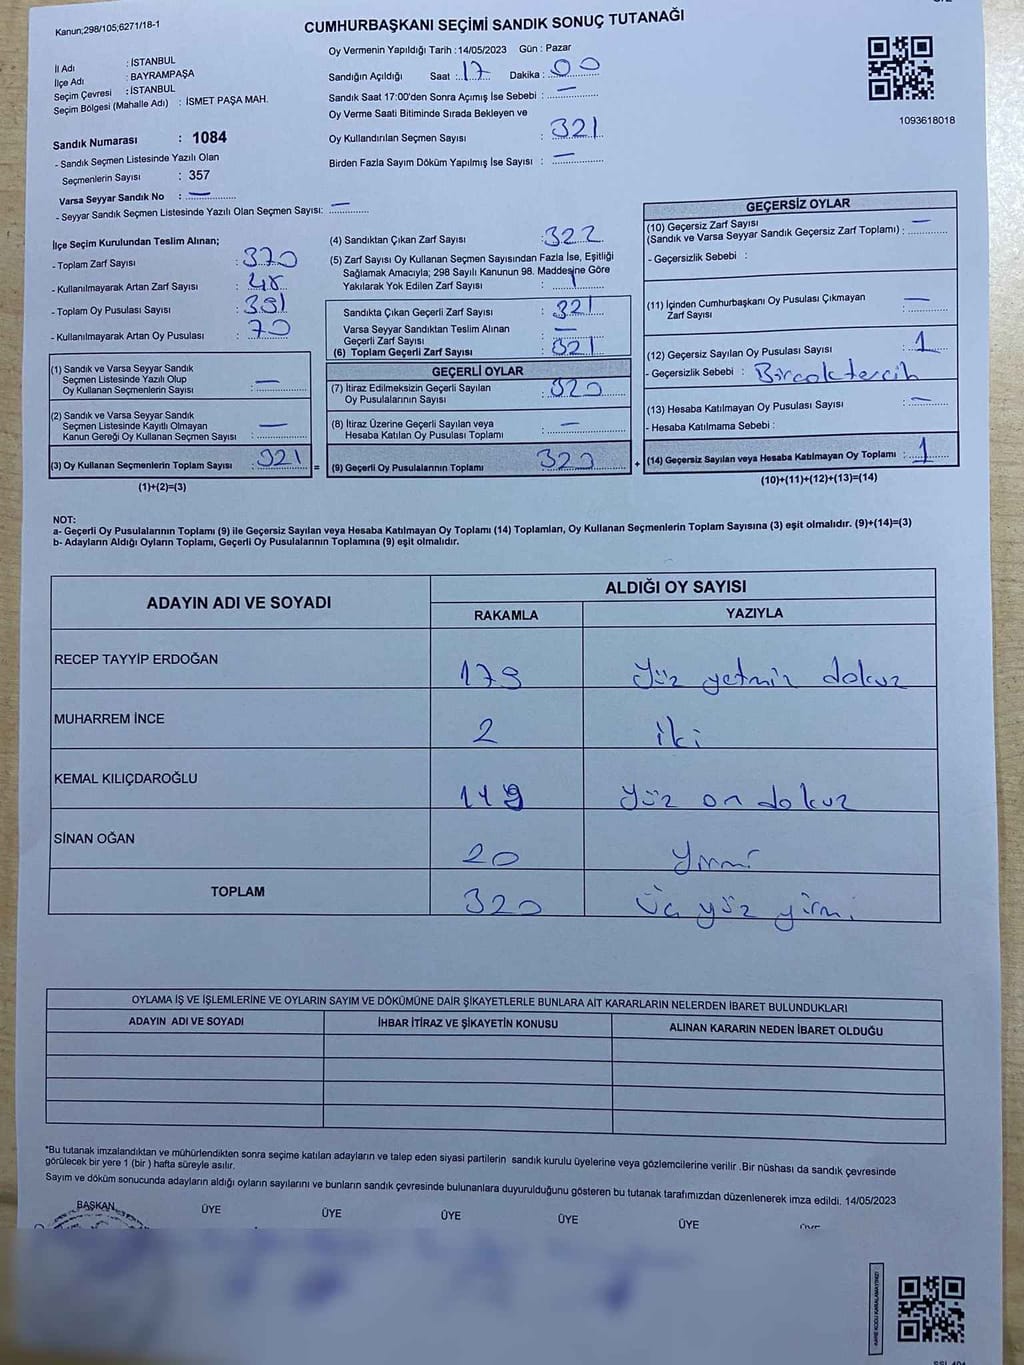 Kanun;298/105;6271/18-1
CUMHURBAŞKANI SEÇİMİ SANDIK SONUÇ TUTANAĞI
İl Adı : İSTANBUL
İlçe Adı : BAYRAMPAŞA
Seçim Çevresi : İSTANBUL
Seçim Bölgesi (Mahalle Adı) : İSMET PAŞA MAH.
Sandık Numarası : 1084
- Sandık Seçmen Listesinde Yazılı Olan
Seçmenlerin Sayısı : 357
Varsa Seyyar Sandık No : —
- Seyyar Sandık Seçmen Listesinde Yazılı Olan Seçmen Sayısı: —
Oy Vermenin Yapıldığı Tarih : 14/05/2023 Gün : Pazar
Sandığın Açıldığı Saat : 17 Dakika : 00
Sandık Saat 17:00'den Sonra Açımış İse Sebebi : —
Oy Verme Saati Bitiminde Sırada Bekleyen ve
Oy Kullandırılan Seçmen Sayısı : 321
Birden Fazla Sayım Döküm Yapılmış İse Sayısı : —
1093618018
İlçe Seçim Kurulundan Teslim Alınan;
- Toplam Zarf Sayısı : 370
- Kullanılmayarak Artan Zarf Sayısı : 48
- Toplam Oy Pusulası Sayısı : 391
- Kullanılmayarak Artan Oy Pusulası : 70
(1) Sandık ve Varsa Seyyar Sandık
Seçmen Listesinde Yazılı Olup
Oy Kullanan Seçmenlerin Sayısı : —
(2) Sandık ve Varsa Seyyar Sandık
Seçmen Listesinde Kayıtlı Olmayan
Kanun Gereği Oy Kullanan Seçmen Sayısı : —
(3) Oy Kullanan Seçmenlerin Toplam Sayısı : 321 =
(1)+(2)=(3)
(4) Sandıktan Çıkan Zarf Sayısı : 322
(5) Zarf Sayısı Oy Kullanan Seçmen Sayısından Fazla İse, Eşitliği
Sağlamak Amacıyla; 298 Sayılı Kanunun 98. Maddesine Göre
Yakılarak Yok Edilen Zarf Sayısı : 1
Sandıkta Çıkan Geçerli Zarf Sayısı : 321
Varsa Seyyar Sandıktan Teslim Alınan
Geçerli Zarf Sayısı : —
(6) Toplam Geçerli Zarf Sayısı : 321
GEÇERLİ OYLAR
(7) İtiraz Edilmeksizin Geçerli Sayılan
Oy Pusulalarının Sayısı : 320
(8) İtiraz Üzerine Geçerli Sayılan veya
Hesaba Katılan Oy Pusulası Toplamı : —
(9) Geçerli Oy Pusulalarının Toplamı 320 +
GEÇERSİZ OYLAR
(10) Geçersiz Zarf Sayısı
(Sandık ve Varsa Seyyar Sandık Geçersiz Zarf Toplamı) : —
- Geçersizlik Sebebi :
(11) İçinden Cumhurbaşkanı Oy Pusulası Çıkmayan
Zarf Sayısı : —
(12) Geçersiz Sayılan Oy Pusulası Sayısı : 1
- Geçersizlik Sebebi : Bircok tercih
(13) Hesaba Katılmayan Oy Pusulası Sayısı : —
- Hesaba Katılmama Sebebi :
(14) Geçersiz Sayılan veya Hesaba Katılmayan Oy Toplamı : 1
(10)+(11)+(12)+(13)=(14)
NOT:
a- Geçerli Oy Pusulalarının Toplamı (9) ile Geçersiz Sayılan veya Hesaba Katılmayan Oy Toplamı (14) Toplamları, Oy Kullanan Seçmenlerin Toplam Sayısına (3) eşit olmalıdır. (9)+(14)=(3)
b- Adayların Aldığı Oyların Toplamı, Geçerli Oy Pusulalarının Toplamına (9) eşit olmalıdır.
ADAYIN ADI VE SOYADI
ALDIĞI OY SAYISI
RAKAMLA YAZIYLA
RECEP TAYYİP ERDOĞAN 179 Yüz yetmiş dokuz
MUHARREM İNCE 2 iki
KEMAL KILIÇDAROĞLU 119 Yüz on dokuz
SİNAN OĞAN 20 Yirmi
TOPLAM 320 Üç yüz yirmi
OYLAMA İŞ VE İŞLEMLERİNE VE OYLARIN SAYIM VE DÖKÜMÜNE DAİR ŞİKAYETLERLE BUNLARA AİT KARARLARIN NELERDEN İBARET BULUNDUKLARI
ADAYIN ADI VE SOYADI İHBAR İTİRAZ VE ŞİKAYETİN KONUSU ALINAN KARARIN NEDEN İBARET OLDUĞU
*Bu tutanak imzalandıktan ve mühürlendikten sonra seçime katılan adayların ve talep eden siyasi partilerin sandık kurulu üyelerine veya gözlemcilerine verilir .Bir nüshası da sandık çevresinde
görülecek bir yere 1 (bir ) hafta süreyle asılır.
Sayım ve döküm sonucunda adayların aldığı oyların sayılarını ve bunların sandık çevresinde bulunanlara duyurulduğunu gösteren bu tutanak tarafımızdan düzenlenerek imza edildi. 14/05/2023
BAŞKAN ÜYE ÜYE ÜYE ÜYE ÜYE